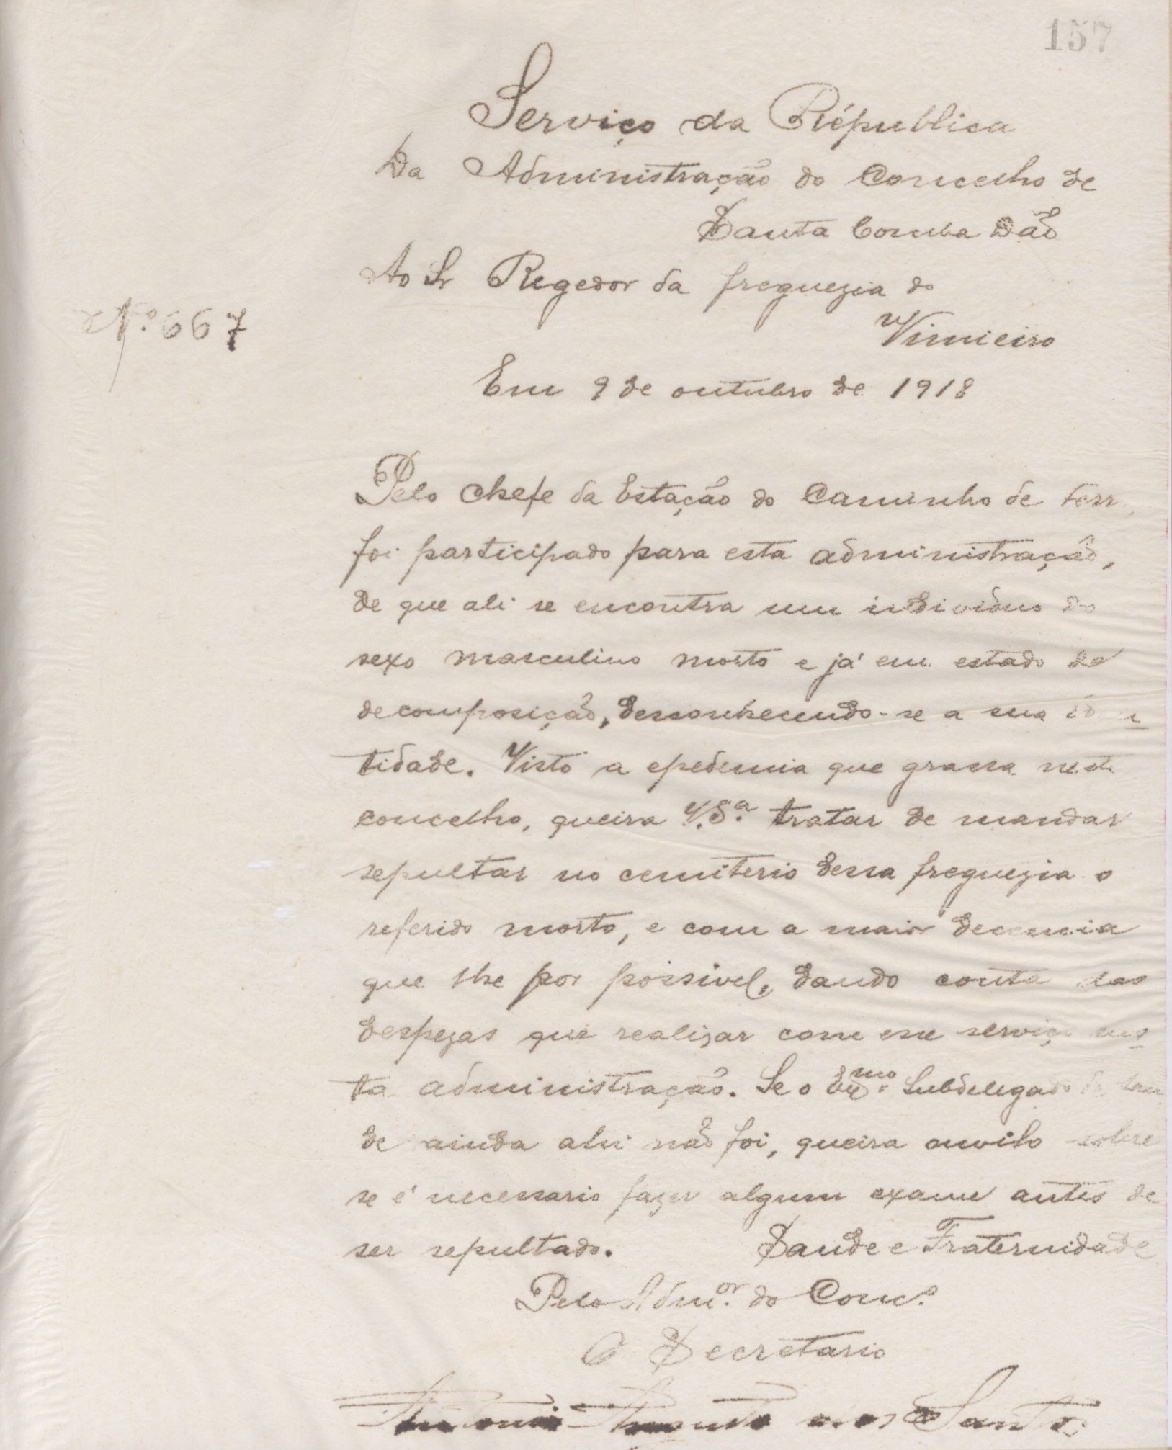 157
Serviço da Républica
Da Administração do Concelho de
Santa Comba Dão
Ao Sr Regedor da freguezia do
Vimieiro
Nº 667
Em 9 de outubro de 1918
Pelo chefe da Estação do Caminho de ferr
foi participado para esta administração,
de que ali se encontra um individuo do
sexo masculino morto e já em estado de
decomposição, desconhecendo-se a sua iden
tidade. Visto a epedemia que grassa neste
concelho, queira V. S.ª tratar de mandar
sepultar no cemiterio dessa freguezia o
referido morto, e com a maior decencia
que lhe for possivel, dando conta das
despezas que realizar com esse serviço nes
ta administração. Se o Exmo. Subdelegado de sau
de ainda ahi não foi, queira ouvilo sobre
se é necessario fazer algum exame antes de
ser sepultado. Saude e Fraternidade
Pelo Admor. do Conc.º
O Secretario
Antonio dos Santos